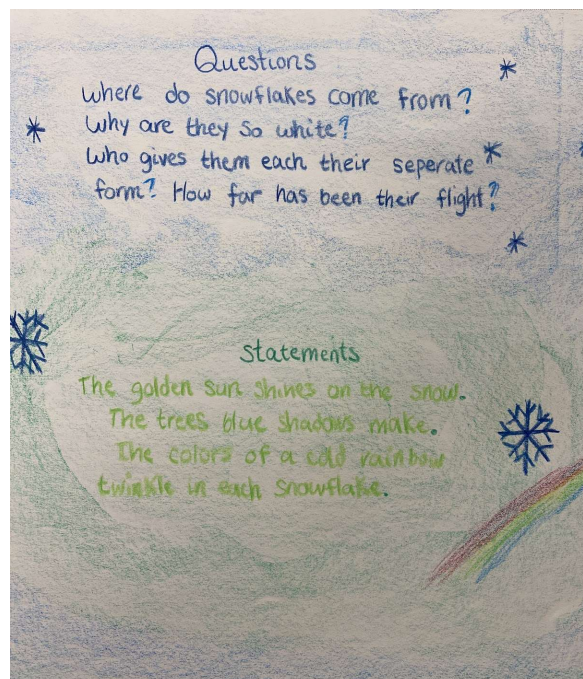 Questions
Where do snowflakes come from?
Why are they so white?
Who gives them each their seperate
form? How far has been their flight?
Statements
The golden sun shines on the snow.
The trees blue shadows make.
The colors of a cold rainbow
twinkle in each snowflake.